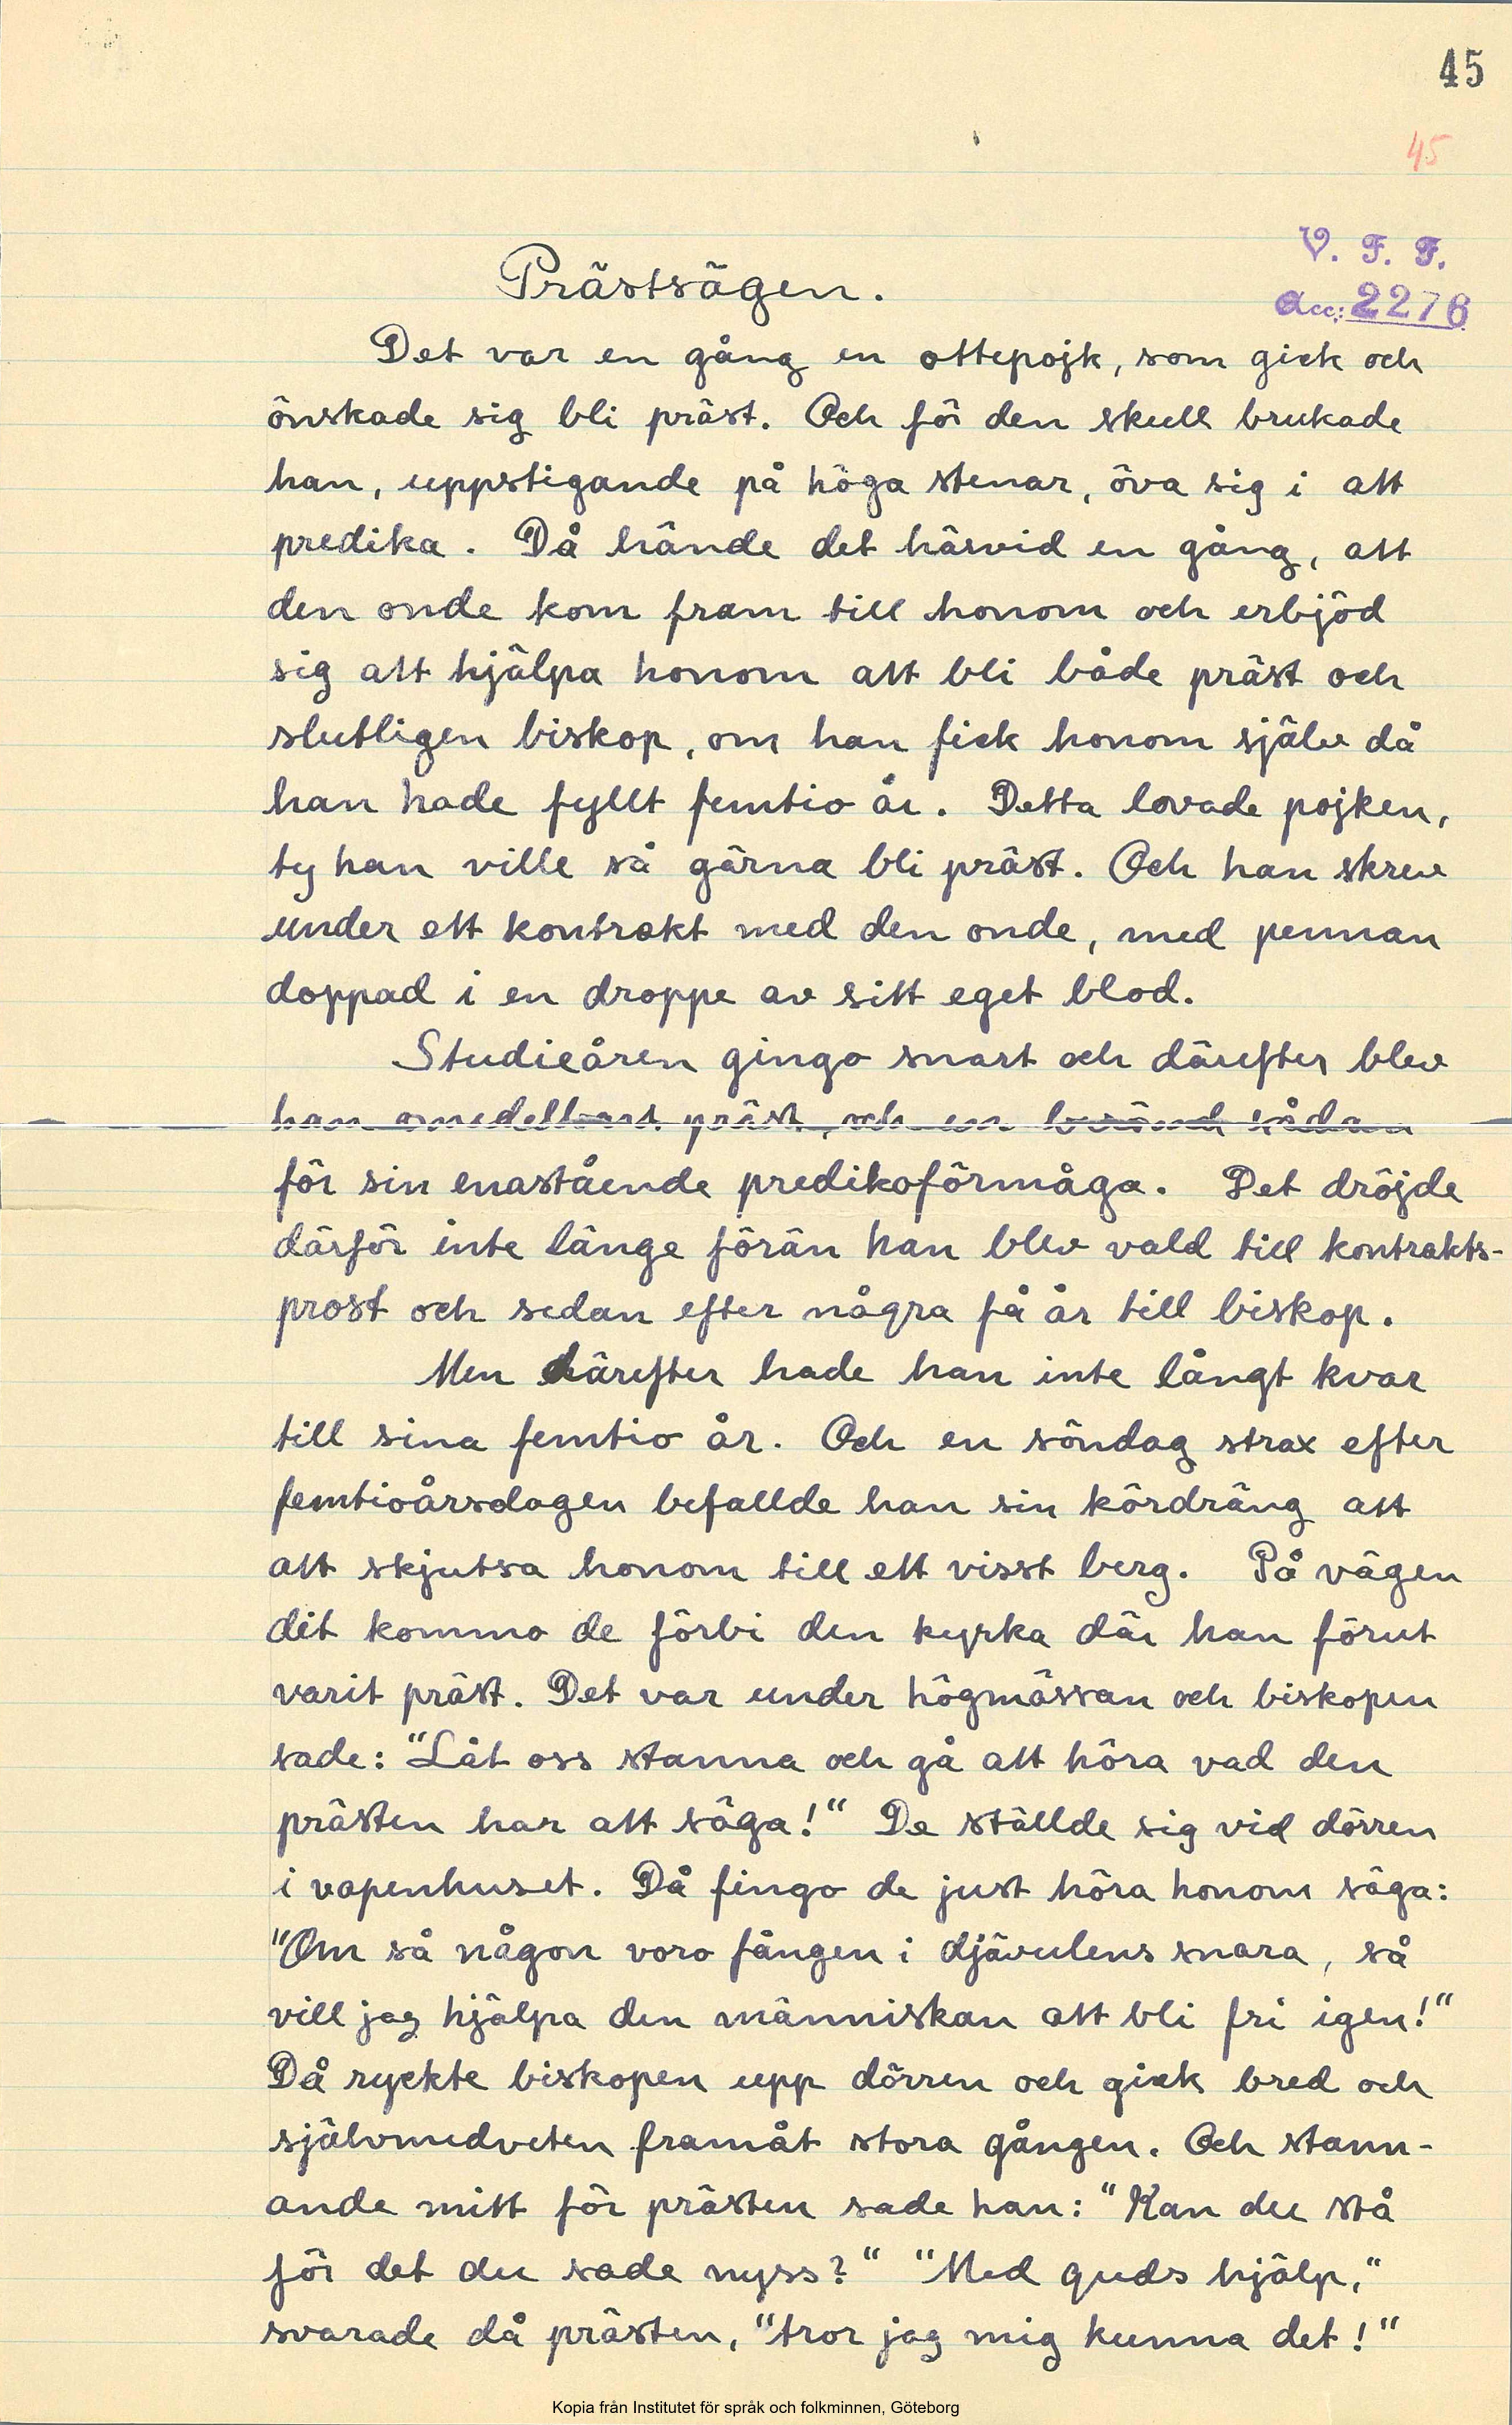 45
45
V. F. F.
Acc: 2276
Prästsägen.
Det var en gång en ottepojk, som gick och
önskade sig bli präst. Och för den skull brukade
han, uppstigande på höga stenar, öva sig i att
predika. Då hände det härvid en gång, att
den onde kom fram till honom och erbjöd
sig att hjälpa honom att bli både präst och
slutligen biskop, om han fick honom själv då
han hade fyllt femtio år. Detta lovade pojken,
ty han ville så gärna bli präst. Och han skrev
under ett kontrakt med den onde, med pennan
doppad i en droppe av sitt eget blod.
Studieåren gingo snart och därefter blev
han omedelbart präst, och en berömd sådan
för sin enastående predikoförmåga. Det dröjde
därför inte länge förän han blev vald till kontrakts-
prost och sedan efter några få år till biskop.
Men därefter hade han inte långt kvar
till sina femtio år. Och en söndag strax efter
femtioårsdagen befallde han sin kördräng att
att skjutsa honom till ett visst berg. På vägen
dit kommo de förbi den kyrka där han förut
varit präst. Det var under högmässan och biskopen
sade: "Låt oss stanna och gå att höra vad den
prästen har att säga!" De ställde sig vid dörren
i vapenhuset. Då fingo de just höra honom säga:
"Om så någon voro fången i djävulens snara, så
vill jag hjälpa den människan att bli fri igen!"
Då ryckte biskopen upp dörren och gick bred och
självmedveten framåt stora gången. Och stann-
ande mitt för prästen sade han: "Kan du stå
för det du sade nyss?" "Med guds hjälp,"
svarade då prästen, "tror jag mig kunna det!"
Kopia från Institutet för språk och folkminnen, Göteborg